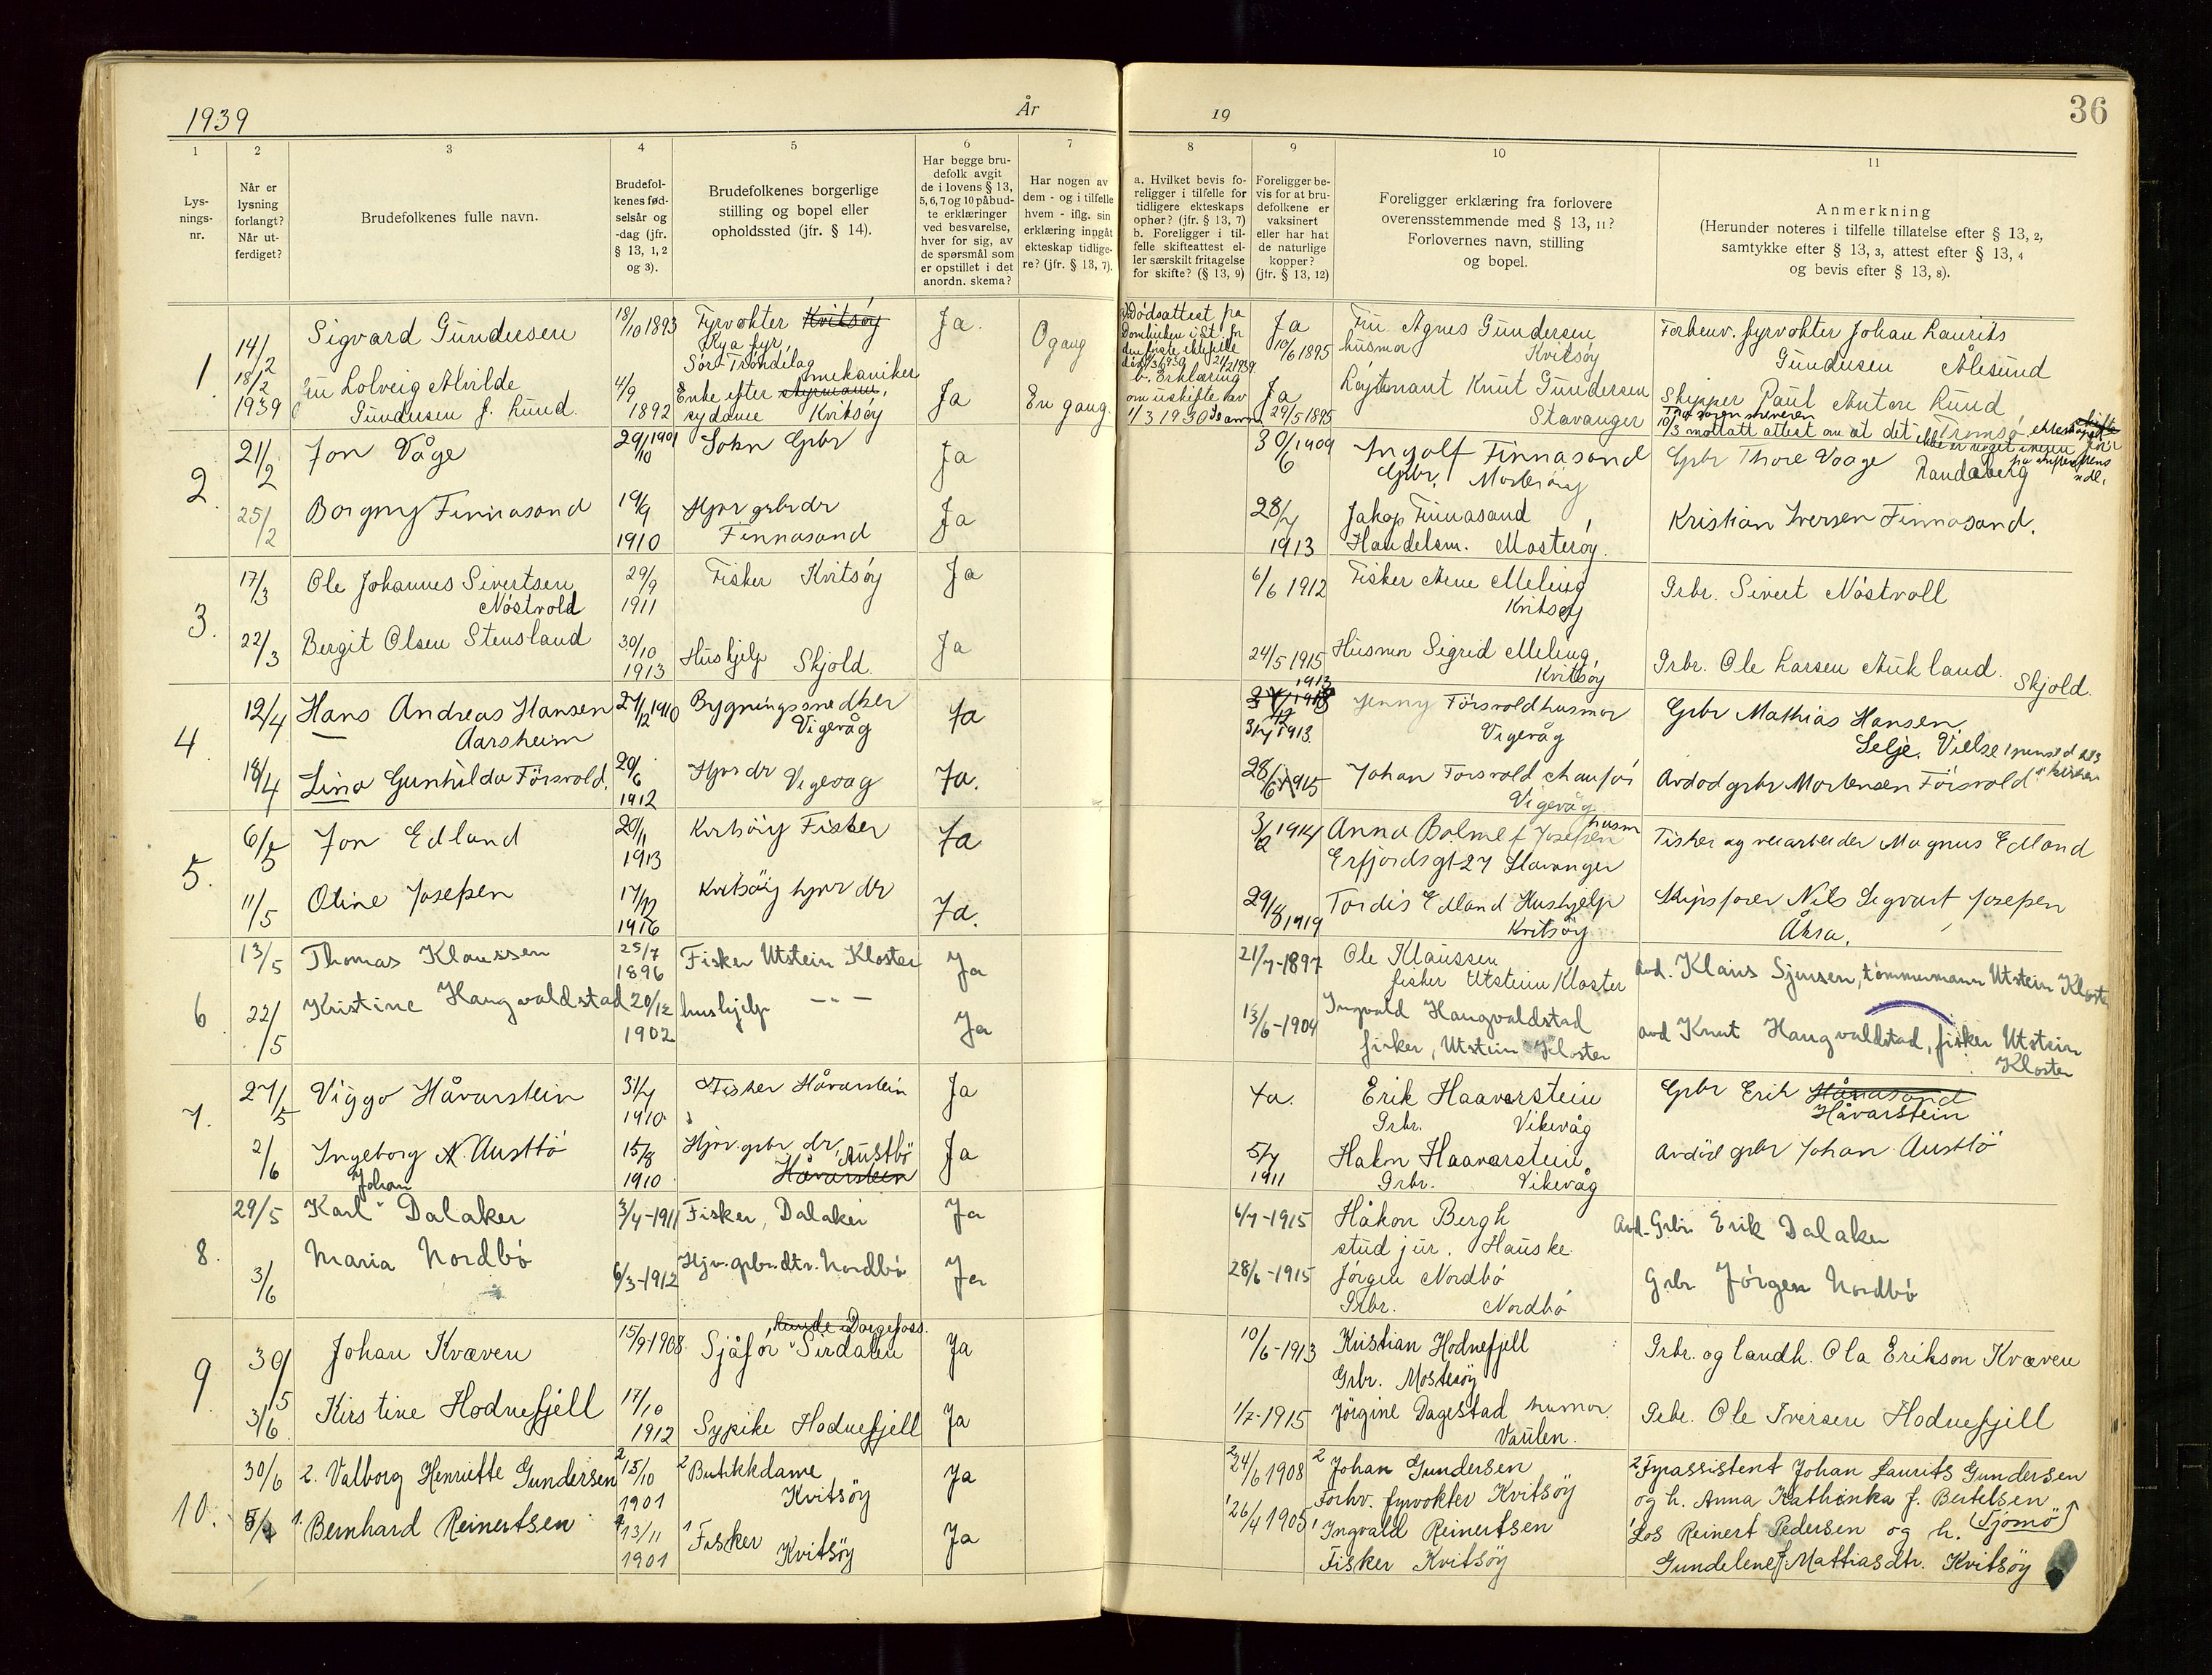 1939
År
19
36
1
2
3
4
5
6
7
8
9
10
11
Lys-
nings-
nr.
Når er
lysning
forlangt?
Når ut-
ferdiget?
Brudefolkenes fulle navn.
Brudefol-
kenes fød-
selsår og
-dag (jfr.
§ 13, 1, 2
og 3).
Brudefolkenes borgerlige
stilling og bopel eller
opholdssted (jfr. § 14).
Har begge bru-
defolk avgit
de i lovens § 13,
5, 6, 7 og 10 påbud-
te erklæringer
ved besvarelse,
hver for sig, av
de spørsmål som
er opstillet i det
anordn. skema?
Har nogen av
dem - og i tilfelle
hvem - iflg. sin
erklæring inngåt
ekteskap tidlige-
re? (jfr. § 13, 7).
a. Hvilket bevis fo-
religger i tilfelle for
tidligere ekteskaps
ophør? (jfr. § 13, 7)
b. Foreligger i til-
felle skifteattest el-
ler særskilt fritagelse
for skifte? (§ 13, 9)
Foreligger be-
vis for at bru-
defolkene er
vaksinert
eller har hat
de naturlige
kopper?
(jfr. § 13, 12)
Foreligger erklæring fra forlovere
overensstemmende med § 13, 11?
Forlovernes navn, stilling
og bopel.
Anmerkning
(Herunder noteres i tilfelle tillatelse efter § 13, 2,
samtykke efter § 13, 3, attest efter § 13, 4
og bevis efter § 13, 8).
1
14/2
18/2
1939
Sigvard Gundersen
18/10 1893
Fyrvokter Kvitsöy
Kya fyr,
Sör-Tröndelag
Ja.
0 gang
Ja
10/6 1895
Fru Agnes Gundersen
husmor Kvitsöy
Forhenv. fyrvokter Johan Laurits
Gundersen Ålesund
Fru Solveig Alvilde
Gundersen f. Lund.
4/9
1892
mekaniker
Enke efter styrmann,
sydame Kvitsöy
Ja
En gang.
b. Erklæring
om uskifte av
1/3 1930
Ja
29/5 1895
Löytenant Knut Gundersen
Stavanger
Skipper Paul Anton Lund
Tromsö
2
21/2
25/2
Jon Våge
29/10 1901
Sokn Grbr
Ja
30/6 1909
Ingolf Finnasand
Grbr. Mosteröy
Grbr Thore Vaage Randaberg
Borgny Finnasand
19/9
1910
Hjvr grbrdr
Finnasand
Ja
28/7
1913
Jakop Finnasand
Handelsm. Mosteröy.
Kristian Iversen Finnasand.
3.
17/3
22/3
Ole Johannes Sivertsen
Nöstvold
29/9
1911
Fisker Kvitsöy
Ja
6/6 1912
Fisker Arne Meling
Kvitsöy
Grbr. Sivert Nöstvoll
Bergit Olsen Stensland
30/10
1913
Hushjelp Skjold.
Ja
24/5 1915
Husmor Sigrid Meling,
Kvitsöy
Grbr. Ole Larsen Aukland
Skjold.
4.
12/4
18/4
Hans Andreas Hansen
Aarsheim
27/12 1910
Bygningssnedker
Vigevåg
Ja
31/7 1913.
Jenny Försvold husmor
Vigevåg
Grbr Mathias Hansen,
Selje.
Lina Gunhilda Försvold.
20/6
1912
Hjvr dr Vigevaag
Ja.
28/6 1915
Johan Forsvold chauför
Vigevåg
Avdöd grbr Mortensen Försvold
5.
6/5
11/5
Jon Edland
20/11
1913
Kvitsöiy Fisker
Ja
3/12 1914
Anna Bolme f Josefsen husm
Erfjordsgt 27 Stavanger
Fisker og veiarbeider Magnus Edland
Oline Josefsen
17/12
1916
Kvitsöiy hjvr dr
Ja.
29/8 1919
Tordis Edland Hushjelp
Kvitsöy
Skipsförer Nils Sigvart Josefsen
Åkra.
6
13/5
22/5
Thomas Klaussen
25/7
1896
Fisker Utstein Kloster
Ja
21/7-1897
Ole Klaussen
fisker Utstein Kloster
avd. Klaus Sjursen, tömmermann Utstein Kloster
Kristine Haugvaldstad
20/12
1902
hushjelp -"-
Ja
13/6-1904
Ingvald Haugvaldstad
fisker, Utstein Kloster
avd Knut Haugvaldstad, fisker Utstein
Kloster
7.
27/5
2/6
Viggo Håvarstein
31/7
1910.
Fisker Håvarstein
Ja
Ja.
Erik Haavarstein
Grbr. Vikevåg
Grbr Erik Håvasand
Håvarstein
Ingeborg N. Austbö
15/8
1910
Hjvr. grbr dr, Austbö
Håvarstein
Ja
5/7
1911
Hakon Haavarstein,
Grbr. Vikevåg
Avdöd grbr Johan Austbö
8.
29/5
3/6
Johan
Karl Dalaker
3/4-1911
Fisker, Dalaker
Ja
6/7-1915
Håkon Bergh
stud jur. Hauske.
Avd. Grbr. Erik Dalaker
Maria Nordbö
6/3-1912
Hjv. grbr.dtr. Nordbö
Ja
28/6-1915
Jörgen Nordbö
Grbr. Nordbö
Grbr Jörgen Nordbö
9
30/5
3/6
Johan Kvæven
15/9-1908
Dorgefoss.
Sjåför Sirdalen
Ja
10/6-1913
Kristian Hodnefjell
Grbr. Mosteröy
Grbr. og landh. Ola Erikson Kvæven
Kirstine Hodnefjell
17/10
1912
Sypike Hodnefjell
Ja
1/7-1915
Jörgine Dagestad husmor.
Vaulen.
Grbr. Ole Iversen Hodnefjell
10.
30/6
5/7
2. Valborg Henriette Gundersen
2 15/10
1901
2 Butikkdame
Kvitsöy
Ja
2 24/6 1908
2 Johan Gundersen
Forhv. fyrvokter Kvitsöy
2 Fyrassistent Johan Laurits Gundersen
og h. Anna Kathinka f. Bertelsen
(Tjomö)
1. Bernhard Reinertsen
13/11
1901
1 Fisker
Kvitsöy
Ja
1 26/4 1905
1 Ingvald Reinertsen
Fisker Kvitsöy
1 Los Reinert Pedersen og h.
Gundelene f. Mattiasdtr. Kvitsöy